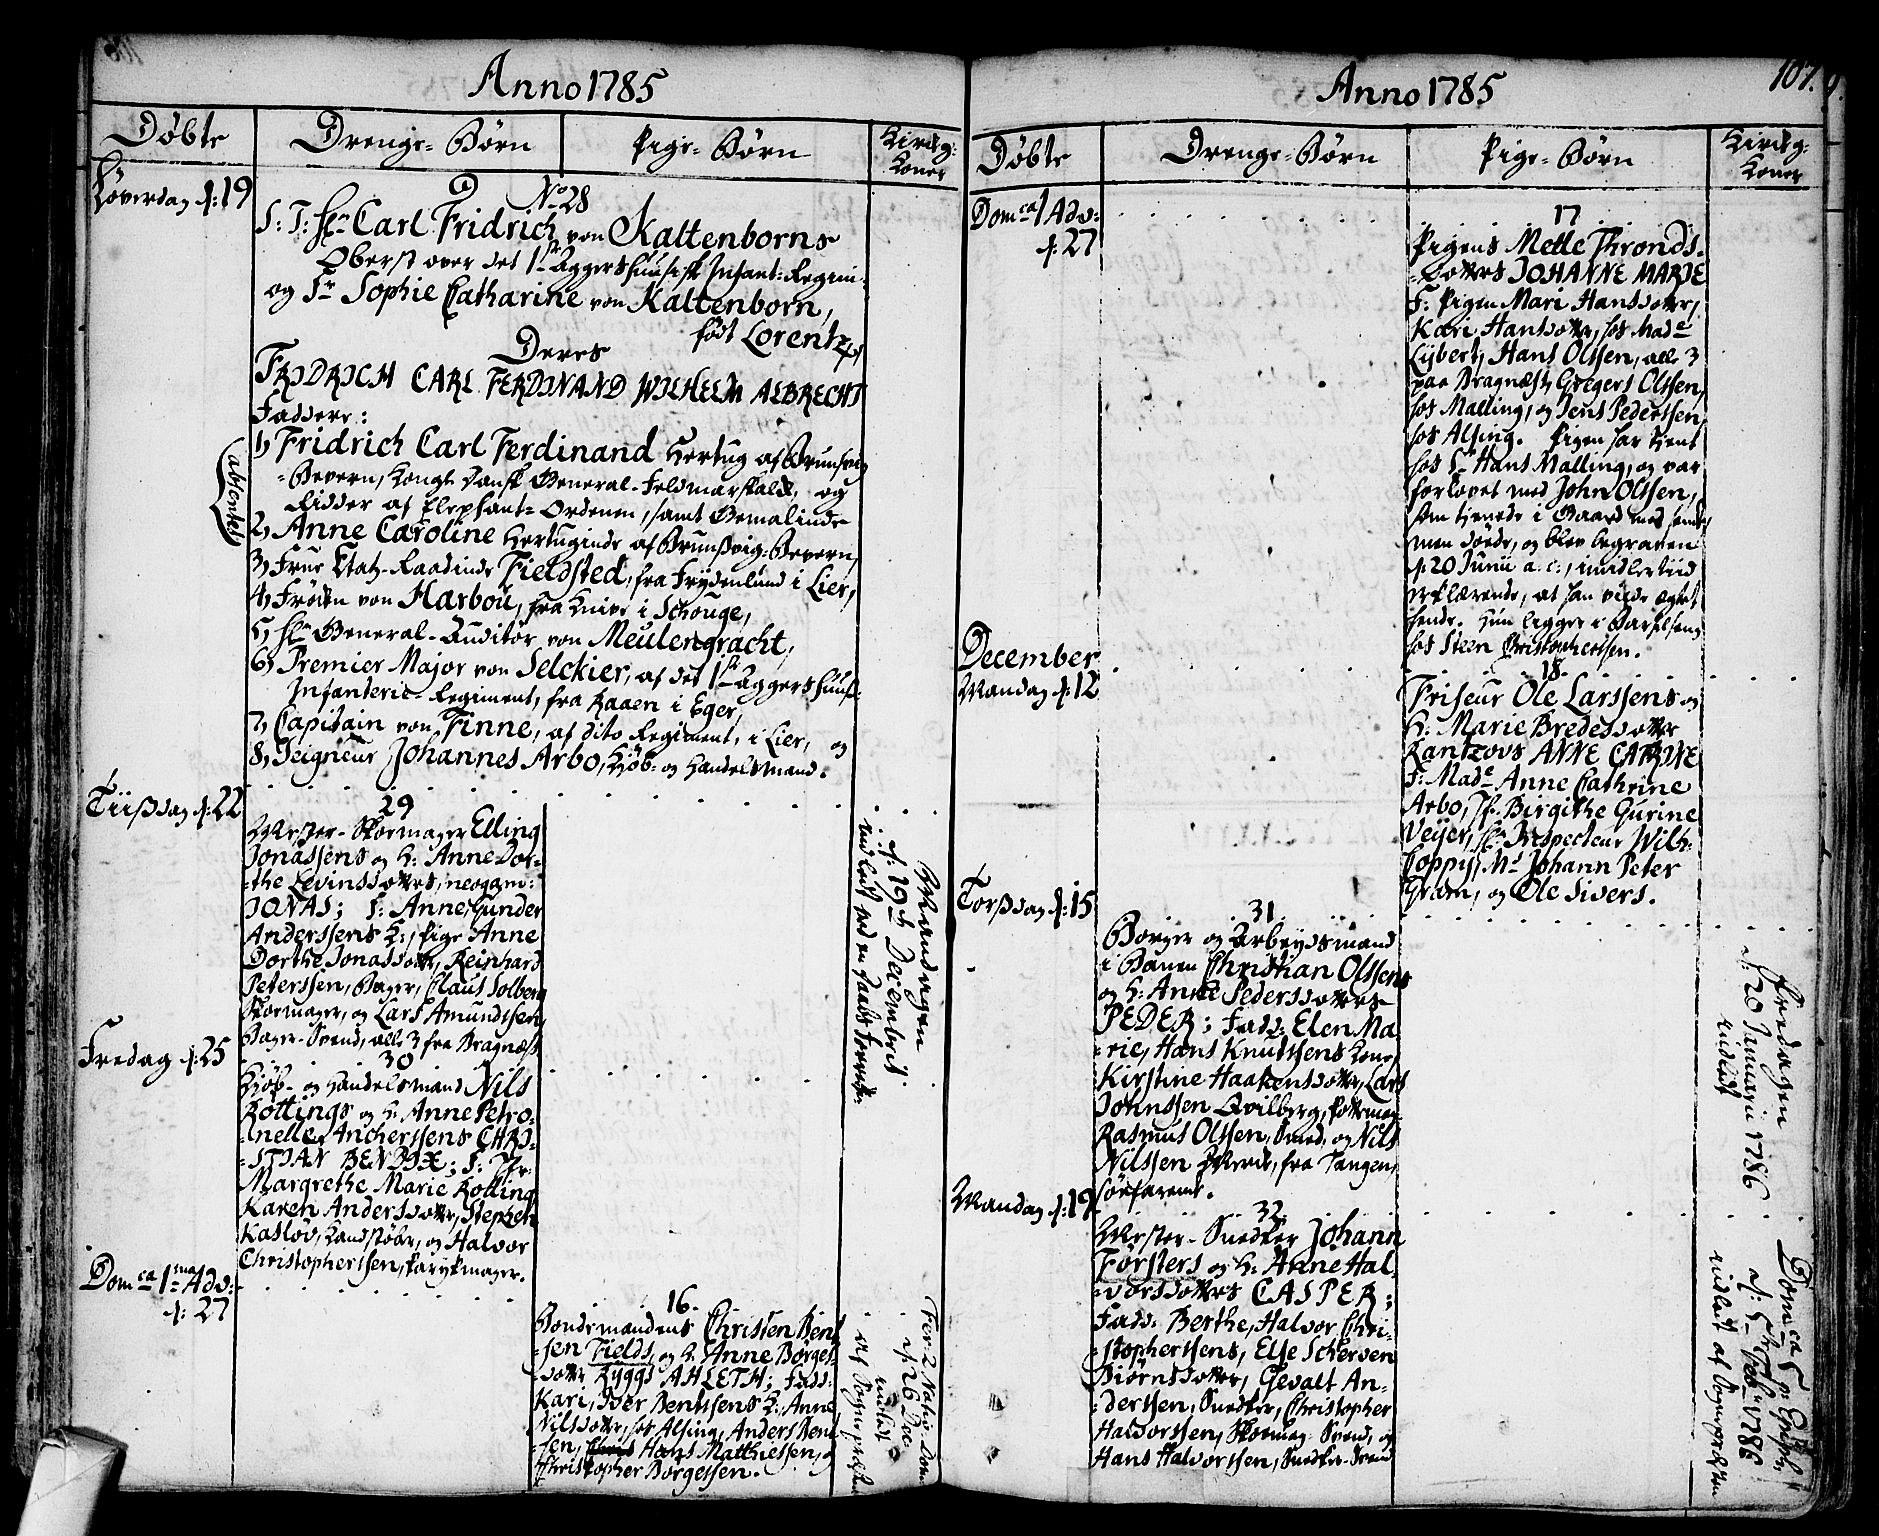 Anno 1785
Døbte
Drenge-Børn
Pige-Børn
Kirkeg:
Koner
Løverdag d: 19
No 28
S: T: Hr Carl Fridrich von Kaltenborns
Oberst over det 1ste Aggershuusisk Infant: Regim:
og Fr Sophie Catharine von Kaltenborn,
født Lorentz
Deres
FRIDRICH CARL FERDINAND WILHELM ALBRECHT
Faddere:
absentes
1, Fridrich Carl Ferdinand Hertug af Brunsvig
-Bevern, Kongl: Dansk General-Feldmarskalk, og
Ridder af Elephant-Ordenen, samt Gemalinde
2, Anne Caroline Hertuginde af Brunsvig-Bevern,
3, Frue Etatz-Raadinde Fieldsted, fra Frydenlund i Lier,
4, Frøken von Harbou, fra Knive i Schouge,
5, Hr General-Auditør von Meulengracht,
6, Premier Major von Selckier, af det 1ste Aggershuus:
Infanterie-Regiment, fra Haaen i Eger,
7, Capitain von Finne, af dito Regiment, i Lier, og
8, Seigneur Johannes Arbo, Kjøb- og Handelsmand.
Tiisdag d: 22
29
Mester-Skoemager Elling
Jonassens og K: Anne Dor-
-the Levinsdotters, neogam:
JONAS; S: Anne, Gunder
Anderssens K:, Pige Anne
Dorthe Jonasdotter, Reinhard
Peterssen, Bager, Claus Solberg
Skoemager, og Lars Amundssen,
Bager-Svend, alle 3 fra Bragnæss
Mandagen
d: 19de Decembris
Fredag d: 25
30
Kjøb- og Handelsmand Nils
Rottings og K: Anne Petro-
-nelle Ancherssens CHRI-
-STIAN BENDIX; S: Jfr
Margrethe Marie Rotting
Karen Andersdotter, Stephen
Kaslov, og Halvor
Christopherssen, Parykmager.
Domca 1ma Adv:
d: 27
16.
Bondemandens Christen Bent
-sen Fields, og K: Anne Børges-
-dotter Ryggs AHLETH; Fadd:
Kari, Iver Bentssens K:, Anne
Nilsdotter, hos Alsing, Anders Bent
-sen, Hans Matthiessen, og
Christopher Børgessen.
Fer: 2 Nativ: Dom:
d: 26 Dec:
indledt
af Sognepræsten
Anno 1785
107.
Døbte
Drenge-Børn
Pige-Børn
Kirkeg:
Koner
Domca 1 Adv:
d: 27
17
Pigens Mette Thronds-
-dotters JOHANNE MARIE
F: Pigen Mari Hansdotter,
Kari Hansdotter, hos Made
Lybert, Hans Olssen, alle 3
paa Bragnæss, Gregers Olssen,
hos Malling, og Jens Pederssen,
hos Alsing. Pigen har tient
hos Sr Hans Malling, og var
forlovet med John Olssen,
som tjenede i Gaard med hende
men døde, og blev begraven
d: 20 Junii a: c:, imidlertiid
erklærende, at han vilde ægte
hende. Hun ligger i Barselseng
hos Steen Christopherssen.
December
Mandag d: 12
18.
Friseur Ole Larssens og
K: Marie Bredesdotter
Rantzovs ANNE CATRINE
S: Made Anne Cathrine
Arbo, Jfr: Birgithe Gurine
Veyer, Hr Inspecteur Wilh:
Coppy, Mr Johann Peter
Gram, og Ole Sivers.
Torsdag d: 15
31.
Borger og Arbeydsmand
i Banen Christian Olssens
og K: Anne Pedersdotters
PEDER; Fadd: Elen Ma-
-rie, Hans Knutssens Kone,
Kirstine Haakensdotter, Lars
Johnssen Qvilberg, Pottemag
Rasmus Olssen, Smed, og Nils
Nilssen Merck, fra Tangen,
Søefarende.
Fredagen
d: 20 Januarii 1786
indledt
Mandag d: 19
32.
Mester-Snedker Johann
Førsters og K: Anne Hal-
-vorsdotters CASPER;
Fadd: Berthe, Halvor Chri-
-stopherssens, Else Scherven
Biørnsdotter, Gevalt An-
-derssen, Snedker, Christopher
Halvorssen, Skoemag-Svend, og
Hans Halvorssen, Snedker-Svend
Domca 5 p: Epiph:
d: 5te Feb: 1786
indledt af Sognepræsten